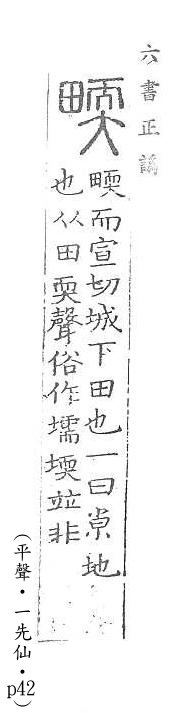 六書正譌
畮 而宣切城下田也一曰㡿地
也从田耎聲俗作壖堧並非
(平聲・一先仙・p42)